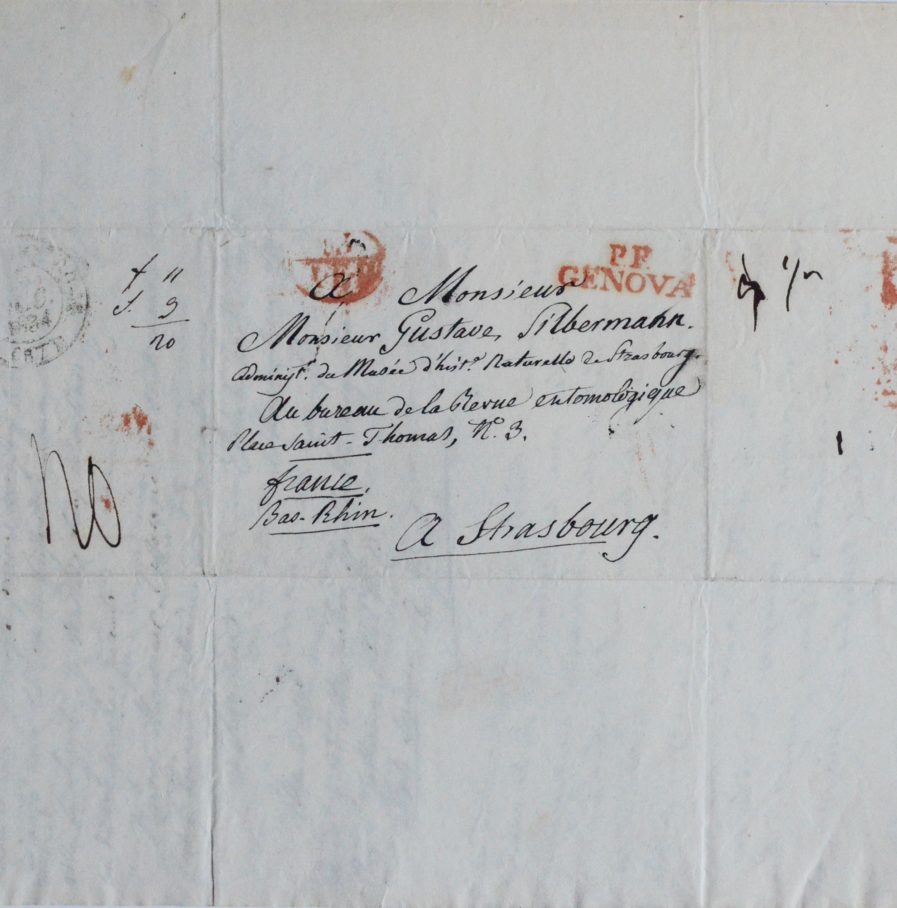 P.P.
GENOVA
A Monsieur
Monsieur Gustave, Silbermann.
Administr. du Musée d'hist.e Naturelle de Strasbourg.
Au bureau de la Revue entomologique
Place Saint-Thomas, N. 3.
france.
Bas-Rhin.
A Strasbourg.
11
9
20